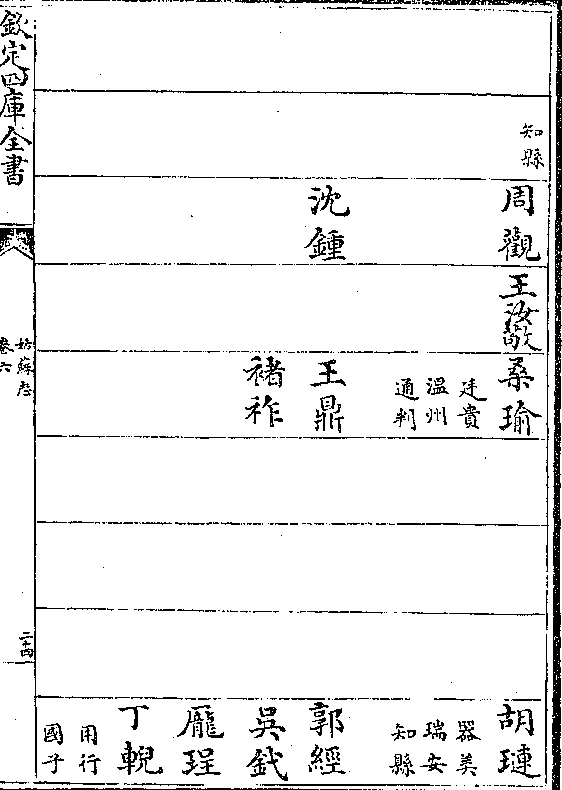 知縣
周觀
沈鍾
王汝
桑瑜
廷貴
溫州
通判
王鼎
褚祚
胡璉
器美
瑞安
知縣
郭經
吳釴
龎珵
丁輗
用行
國子
欽定四庫全書
姑蘇志
卷六
二十四